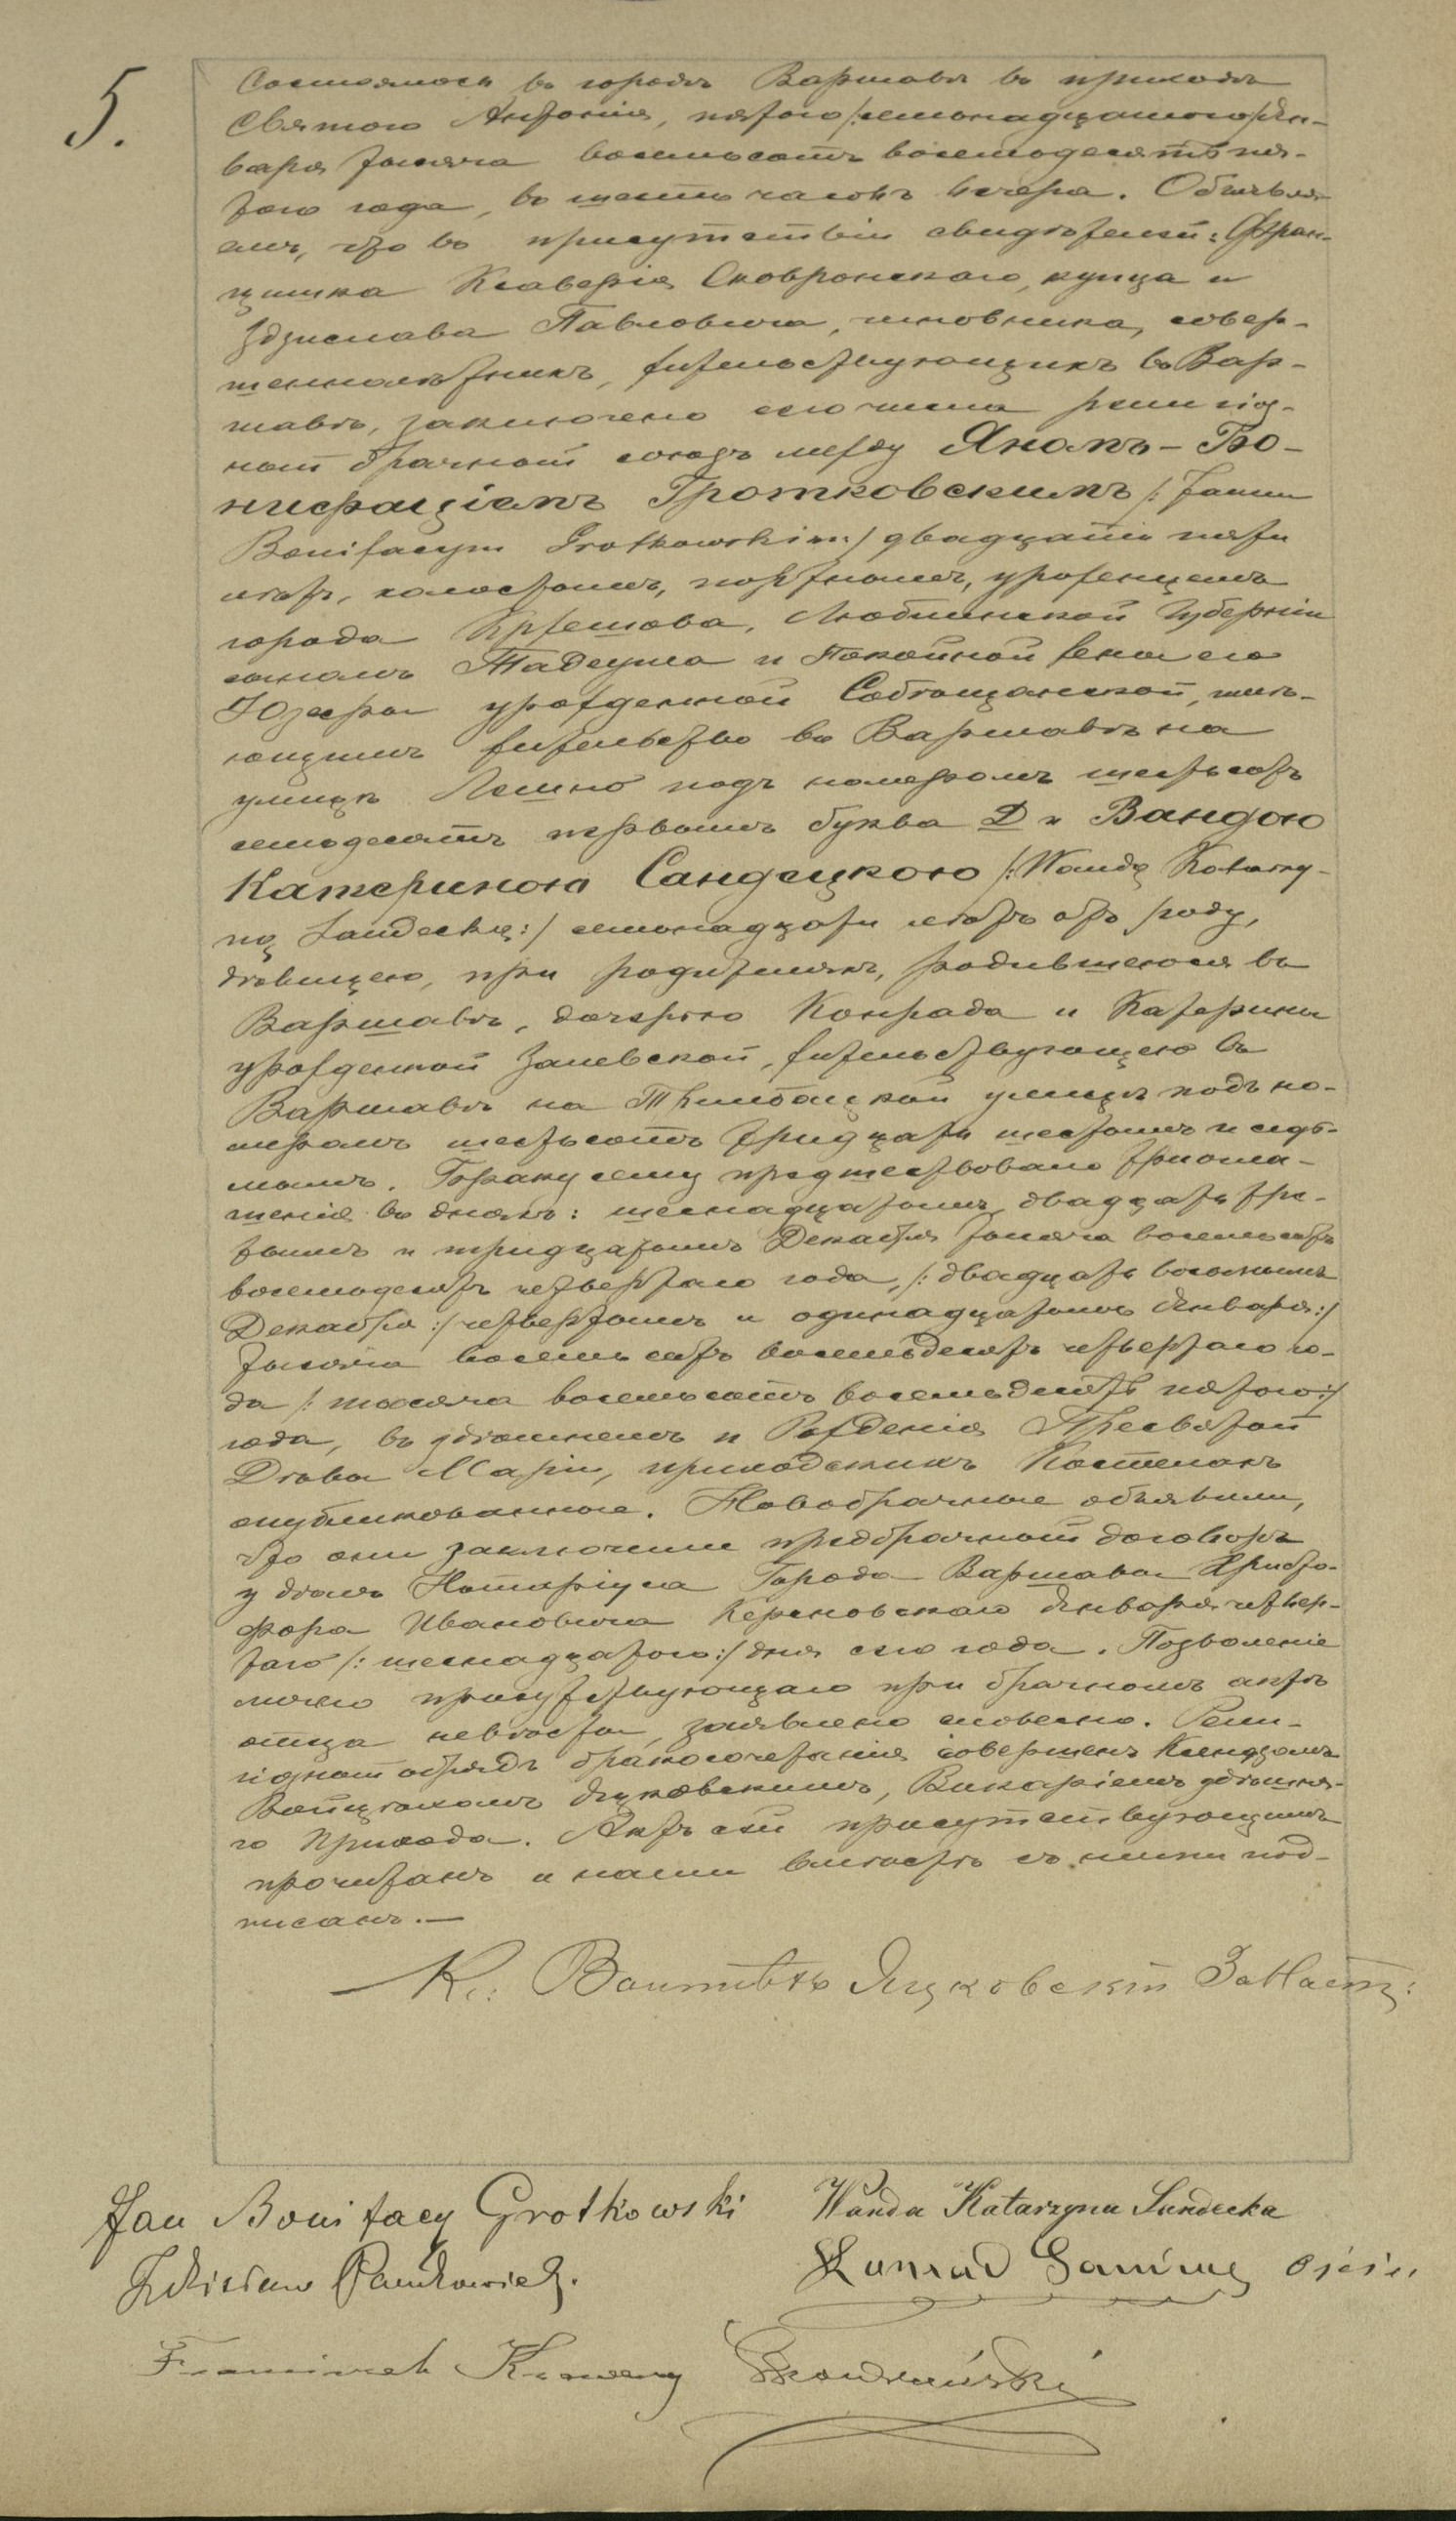 5.
Состоялось въ городѣ Варшавѣ въ приходѣ
Святого Антонія, пятого /:семьнадцатого:/ Ян-
варя тысяча восемьсотъ восемьдесятъ пя-
того года, въ шесть часовъ вечера. Объявля-
емъ, что въ присутствіи свидѣтелей: Фран-
цишка Ксаверія Сковронскаго, купца и
Здзислава Павловича, чиновника, совер-
шеннолѣтнихъ, жительствующихъ въ Вар-
шавѣ, заключено сего числа религіоз-
ный брачный союзъ между Яномъ-Бо-
нифаціемъ Гротковскимъ /: Janem
Bonifacym Grotkowskim:/ двадцати пяти
лѣтъ, холостымъ, портнымъ, уроженцемъ
города Кржешова, Люблинской Губерніи
сыномъ Тадеуша и Покойной жены его
Юзефы урожденной, имѣ-
ющимъ жительство въ Варшавѣ на
улицѣ Лешно подъ номеромъ шестьсотъ
семьдесятъ первымъ буква Д и Вандою
Катериною Сандецкою /: Wandą Katarzy-
ną Sandecką:/ семьнадцати лѣтъ отъ роду,
дѣвицею, при родителяхъ, родившеюся въ
Варшавѣ, дочерью Конрада и Катерины
урожденной Залевской, жительствующею въ
Варшавѣ на Тломацкой улицѣ подъ но-
меромъ шестьсотъ тридцать шестымъ и седь-
мымъ. Браку сему предшествовало три огла-
шенія въ дняхъ: шеснадцатомъ, двадцать тре-
тьемъ и тридцатомъ Декабря тысяча восемьсотъ
восемьдесятъ четвертаго года, /: двадцать восьмымъ
Декабря:/ четвертымъ и одинадцатомъ Января:/
тысяча восемьсотъ восемьдесятъ четвертаго го-
да /: тысяча восемьсотъ восемьдесятъ пятого:/
года, въ здѣшнемъ и Рожденія Пресвятой
Дѣвы Маріи, приходскихъ Костелахъ
опубликованные. Новобрачные объявили,
что они заключили предбрачный договоръ
у дѣлъ Нотаріуса Города Варшавы Христо-
фора Ивановича Января четвер-
таго /: шеснадцатого:/ дня сего года. Позволеніе
лично присутствующаго при брачномъ актѣ
отца невѣсты, заявлено словесно. Рели-
гіозный обрядъ бракосочетанія совершенъ Ксендзомъ
Войцѣхомъ Яцковскимъ, Викаріемъ здѣшня-
го Прихода. Актъ сей присутствующимъ
прочитанъ и нами вмѣстѣ съ ними под-
писанъ.—
Кс: Войтѣхъ Яцковскій За Наст:
Jan Bonifacy Grotkowski Wanda Katarzyna Sandecka
Zdzisław
Franciszek Ksawery Skowroński